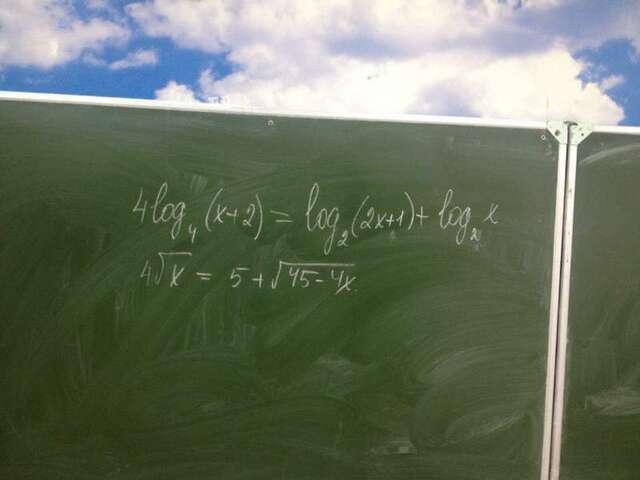 4log₄(x+2) = log₂(2x+1) + log₂x
4√x = 5 + √(45-4x)